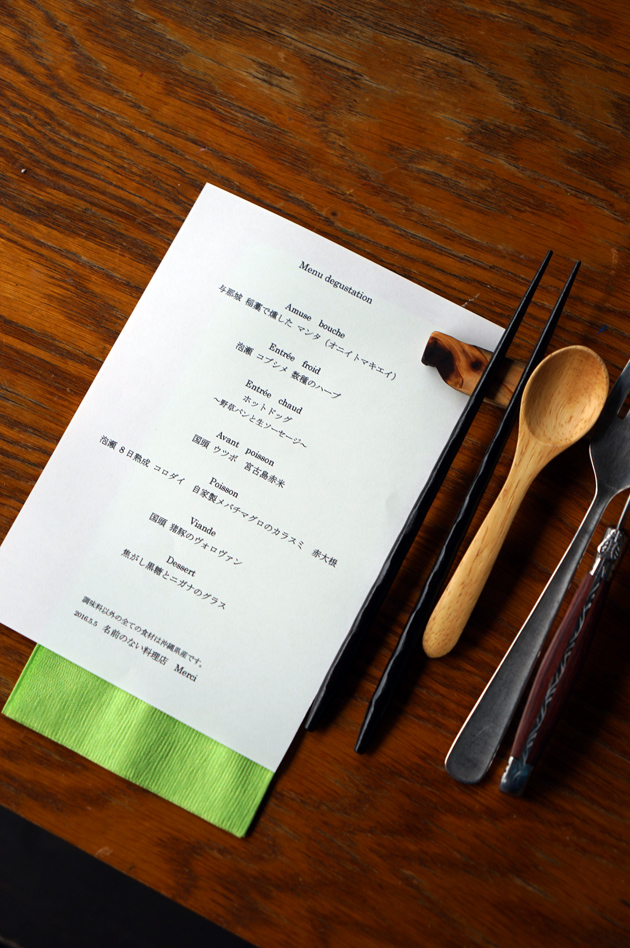 Menu degustation
Amuse bouche
与那城 稲藁で燻した マンタ (オニイトマキエイ)
Entrée froid
泡瀬 コブシメ 数種のハーブ
Entrée chaud
ホットドッグ
～野草パンと生ソーセージ～
Avant poisson
国頭 ウツボ 宮古島赤米
Poisson
泡瀬 8日熟成 コロダイ 自家製メバチマグロのカラスミ 赤大根
Viande
国頭 猪豚のヴォロヴァン
Dessert
焦がし黒糖とニガナのグラス
調味料以外の全ての食材は沖縄県産です。
2016.5.5 名前のない料理店 Merci